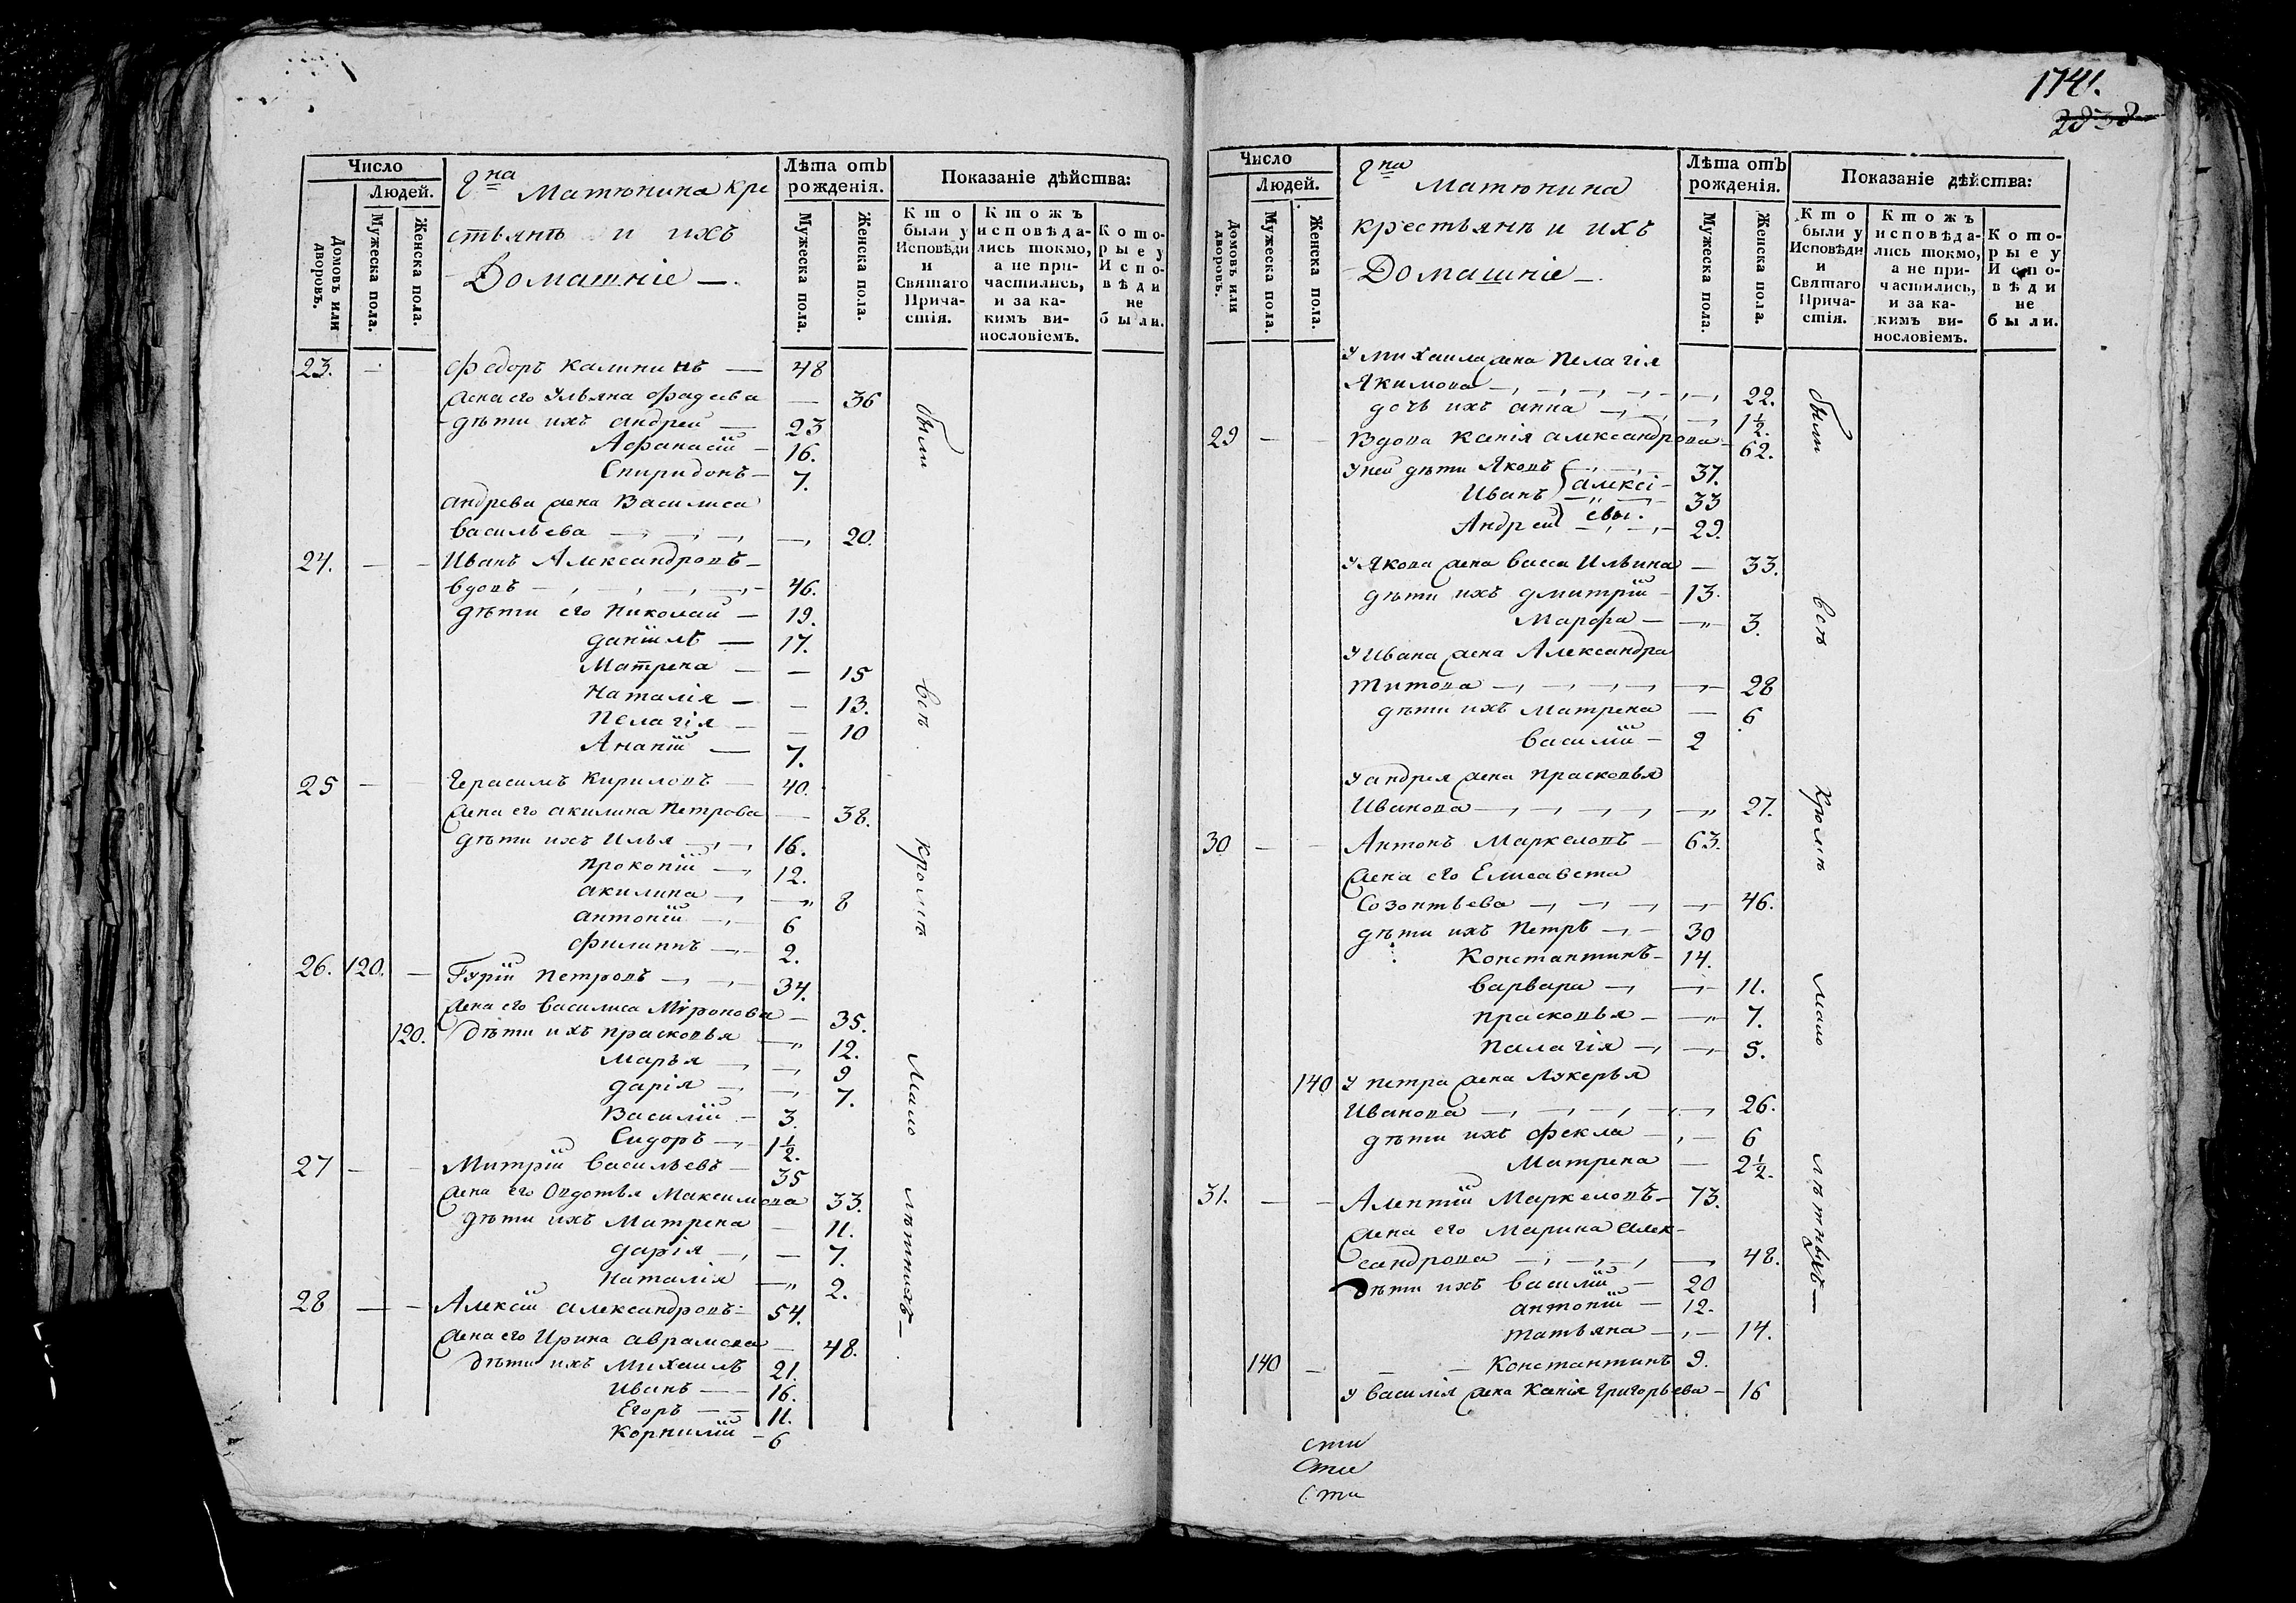 Число
Людей.
Домовъ или дворовъ.
Мужеска пола.
Женска пола.
Гна Матюнина кре
стьянъ и ихъ
Домашніе —.
Лѣта отъ рожденія.
Мужеска пола.
Женска пола.
Показаніе дѣйства:
Кто были у Исповѣди и Святаго Причастія.
Ктожъ исповѣдались токмо, а не причастились, и за какимъ винословіемъ.
Которые у Исповѣди не были.
23. — Федоръ Калининъ — 48
жена его Ульяна Фадеева — 36
дѣти ихъ андрей — 23
Афанасій — 16.
Спиридонъ — 7.
андрева жена Василиса
васильева — 20.
24. — — Иванъ Александровъ —
вдовъ — 46.
дѣти его Николай — 19.
даніилъ — 17.
Матрена — — 15
Наталія — — 13.
Пелагія — — 10
Ананій — 7.
25 — — Герасимъ Кириловъ — 40.
жена его акилина Петрова — 38.
дѣти ихъ Илья — 16.
прокопій — 12.
акилина — 8
антоній — 6
филиппъ — 2.
26. 120. — Гурій петровъ — 34.
жена его василиса Мѵронова — 35.
120. дѣти ихъ прасковья — 12.
марья — 9
дарія — 7.
Василій — 3.
Сидоръ — 1½.
27 — — Митрій васильевъ — 35
жена его Овдотья Максимова 33.
дѣти ихъ Матрена — 11.
дарія — — 7.
наталія — 2.
28 — — Алексій александровъ — 54.
жена его Ирина аврамова — 48.
дѣти ихъ михаилъ 21.
иванъ — 16.
Егоръ — 11.
корнилій — 6
были
всѣ
кромѣ
мало
лѣтнихъ —
1741.
Число
Людей.
Домовъ или дворовъ.
Мужеска пола.
Женска пола.
Гна Матюнина
крестьянъ и ихъ
Домашніе —.
Лѣта отъ рожденія.
Мужеска пола.
Женска пола.
Показаніе дѣйства:
Кто были у Исповѣди и Святаго Причастія.
Ктожъ исповѣдались токмо, а не причастились, и за какимъ винословіемъ.
Которые у Исповѣди не были.
у михаила жена пелагія
Якимова — 22.
дочь ихъ анна — 1½.
29 — — Вдова Ксенія александрова — 62.
у ней дѣти Яковъ — 37.
Иванъ алексі — 33
Андрей евы. — 29.
у Якова жена васса Ильина — 33.
дѣти ихъ дмитрій — 13.
Марфа — 3.
у Ивана жена Александра
титова — 28
дѣти ихъ матрена — 6.
василій — 2
у андрея жена прасковья
Иванова — 27.
30 — — Антонъ Маркеловъ — 63.
жена его Елисавета
Созонтьева — 46.
дѣти ихъ Петръ — 30
Константинъ — 14.
варвара — 11.
прасковья — 7.
палагія — 5.
140 у петра жена лукерья
Иванова — 26.
дѣти ихъ фекла — 6
Матрена — 2½.
31. — — Алентій Маркеловъ — 73.
жена его марина алек-
сандрова — 48.
дѣти ихъ василій — 20
антоній — 12.
татьяна — 14.
140 — — — Константинъ 9.
у василія жена Ксенія григорьева — 16
были
всѣ
кромѣ
мало
лѣтныхъ —
сти
сти
сти